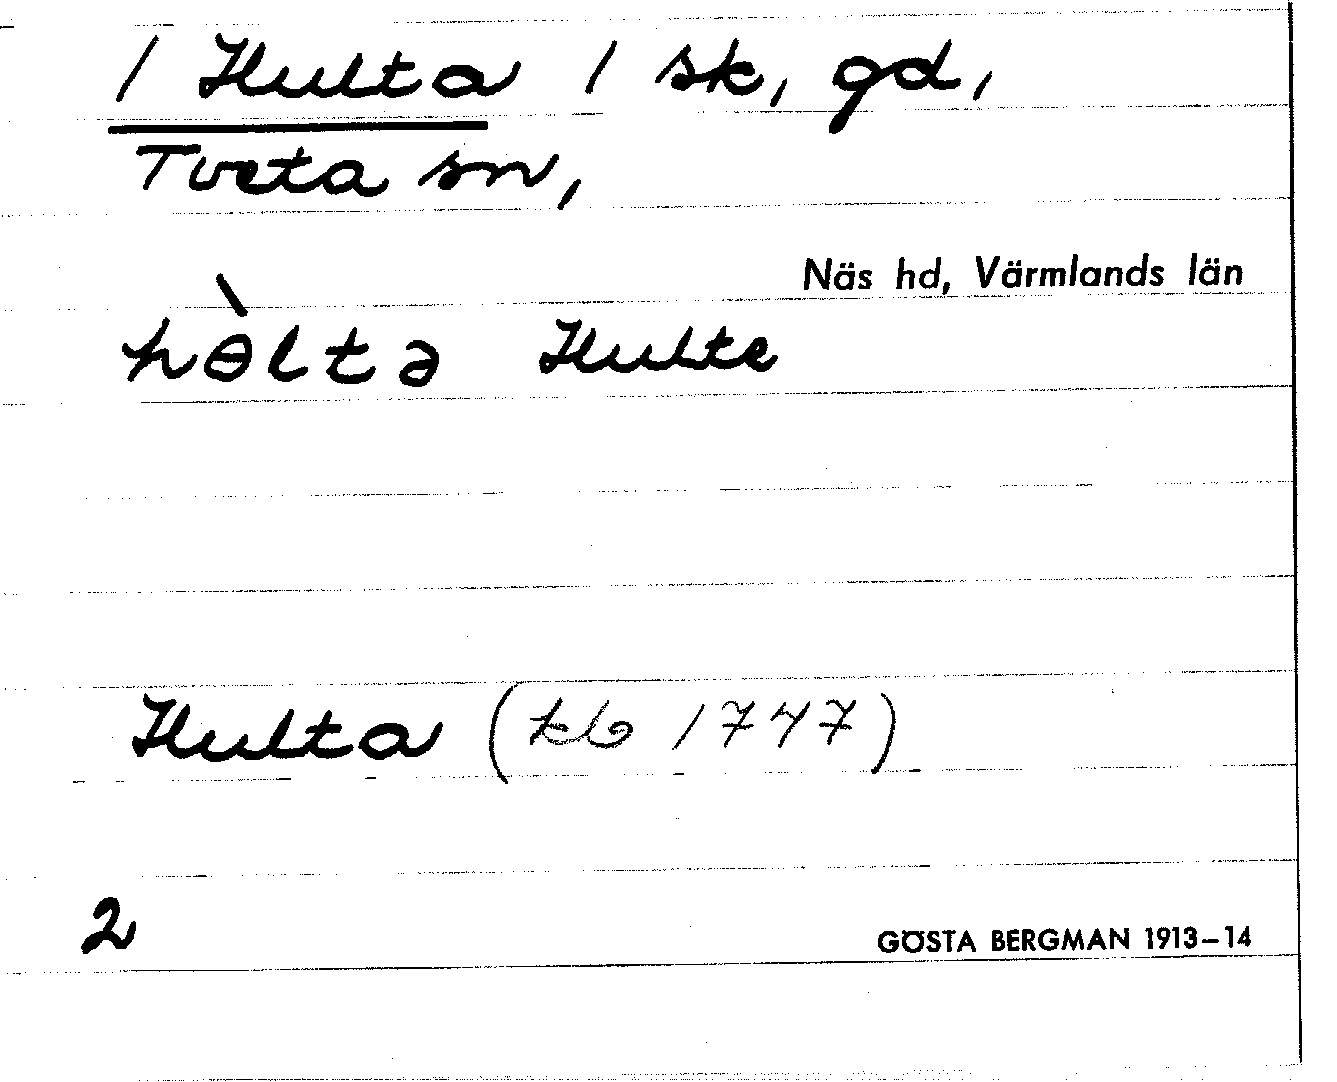 / Hulta / sk, gd,
Tveta sn,
Näs hd, Värmlands län
hɵ̀ltə Hulte
Hulta (kb 1747)
2
GÖSTA BERGMAN 1913–14